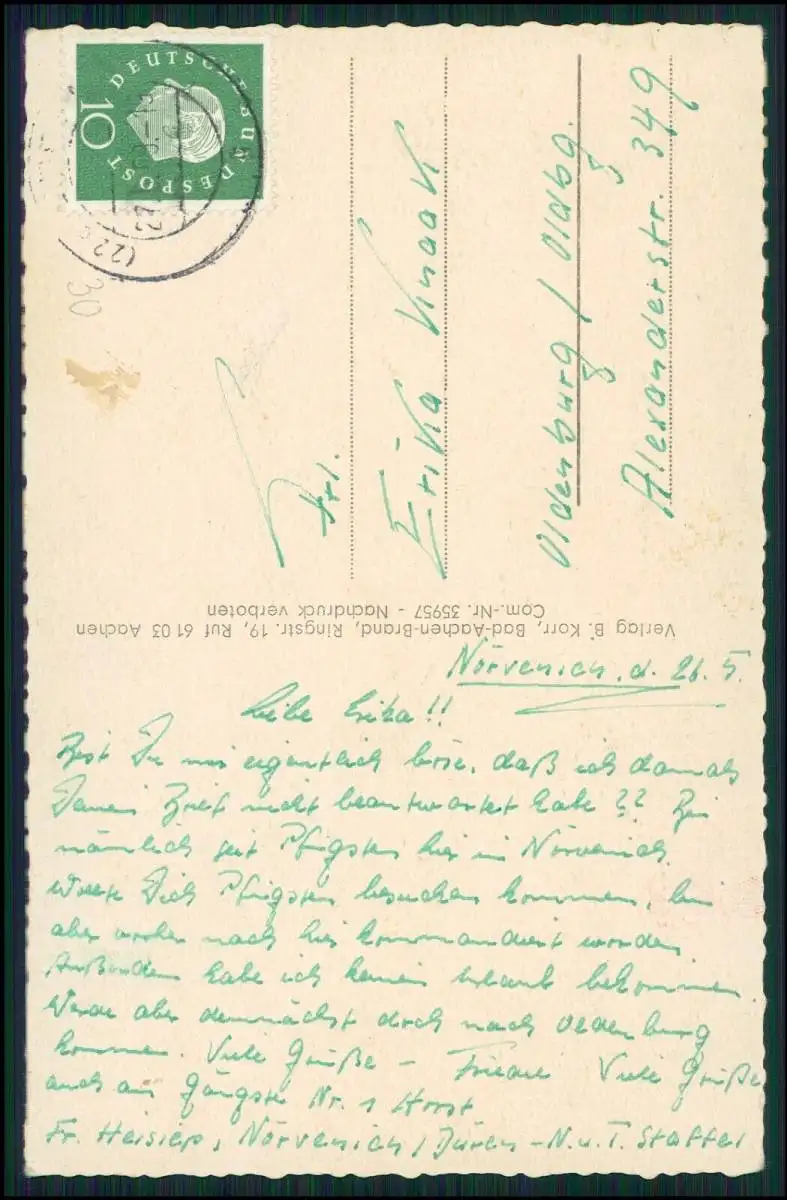 DEUTSCHE BUNDESPOST
10
(22c)
30
Frl.
Erika Knaak
Oldenburg / Oldbg.
Alexanderstr. 349
Verlag B. Korr, Bad-Aachen-Brand, Ringstr. 19, Ruf 61 03 Aachen
Com.-Nr. 35957 - Nachdruck verboten
Nörvenich, d. 26.5.
Liebe Erika!!
Bist Du mir eigentlich böse, daß ich damals
Deinen Brief nicht beantwortet habe?? Bin
nämlich seit Pfigsten hier in Nörvenich.
Wollte Dich Pfigsten besuchen kommen, bin
aber vorher nach hier kommandiert worden.
Außerdem habe ich keinen Urlaub bekommen.
Werde aber demnächst doch nach Oldenburg
kommen. Viele Grüße – Viele Grüße
auch an Nr. 1 Horst
Fr. Heisiep, Nörvenich / Düren - N. u. T. Staffel